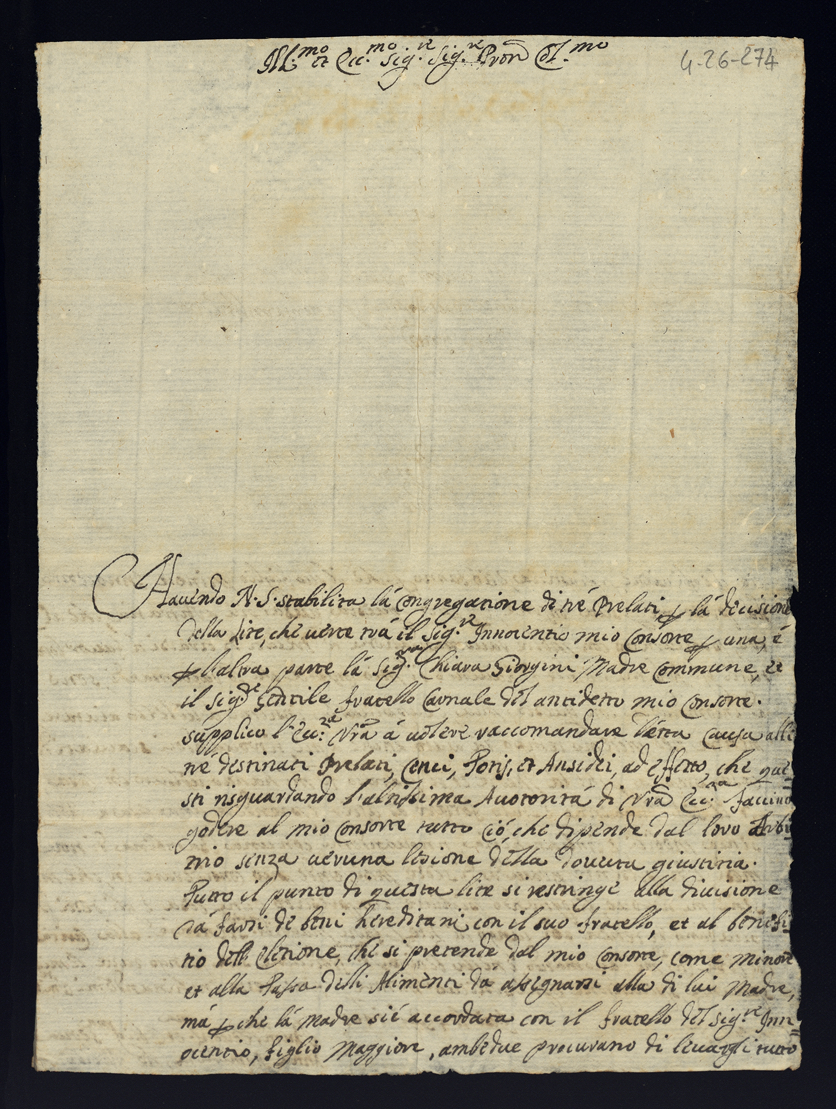 Ill.mo et Ecc.mo Sig.re Sig.re Pron Col.mo
4-26-274
Hauendo N. S. stabilita lá congregatione di tré Prelati p lá decisione
della lite, che uerte trá il Sig.re Innocentio mio Consorte p una, é
p l'altra parte lá Sig.ra Chiara Giorgini Madre Commune, et
il Sig.re Gentile fratello Carnale del antidetto mio consorte.
supplico l'Ecc.za Vrã á uolere raccomandare detta causa alli
tré destinati Prelati, Cenci, et Ansidei, ad effetto, che que=
sti risguardando l'altissima Auotoritá di Vrã Ecc.za faccino
godere al mio consorte tutto ció che dipende dal loro Arbi=
trio senza ueruna lesione della douuta giustitia.
Tutto il punto di questa lite si restringe alla diuisione
dá farsi de beni hereditarij con il suo fratello, et al benefi
tio dell'eletione, che si pretende dal mio Consorte, come minore
et alla Tassa delli Alimenti dá assegnarsi alla di lui Madre,
má p che lá Madre sié accordata con il fratello del Sig.re Inn=
ocentio, figlio Maggiore, ambedue procurano di leuargli tutto